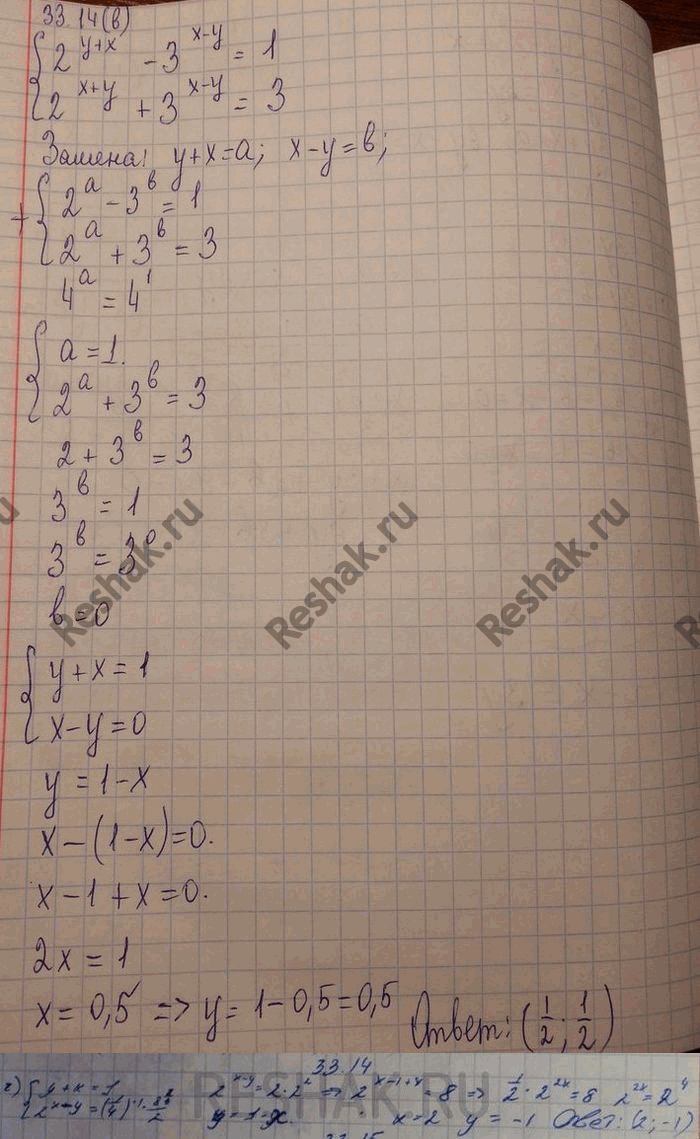 33.14(в)
{ 2^{y+x} - 3^{x-y} = 1
{ 2^{x+y} + 3^{x-y} = 3
Замена: y+x=a; x-y=в;
+ { 2^a - 3^в = 1
{ 2^a + 3^в = 3
4^a = 4^1
{ a = 1.
{ 2^a + 3^в = 3
2 + 3^в = 3
3^в = 1
3^в = 3^0
в = 0
Reshak.ru Reshak.ru Reshak.ru
{ y + x = 1
{ x - y = 0
y = 1 - x
x - (1 - x) = 0.
x - 1 + x = 0.
2x = 1
x = 0,5 => y = 1 - 0,5 = 0,5 Ответ: (1/2; 1/2)
RESHAK.RU
33.14
г) { y + x = 1 2^{x-y} = 2·2^2 => 2^{x-1+x} = 8 => 1/2 · 2^{2x} = 8 2^{2x} = 2^4
y = 1 - x. x = 2 y = -1 Ответ: (2; -1)
33.15